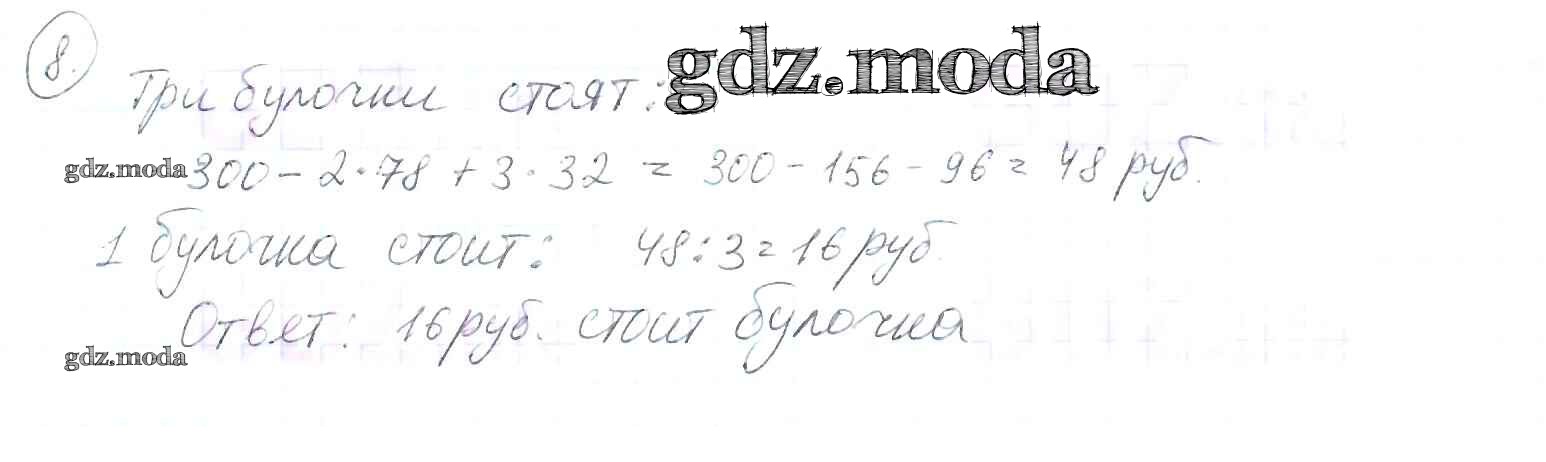 8.
Три булочки стоят: gdz.moda
gdz.moda 300 - 2·78 + 3·32 = 300 - 156 - 96 = 48 руб.
1 булочка стоит: 48:3=16 руб.
Ответ: 16 руб. стоит булочка
gdz.moda